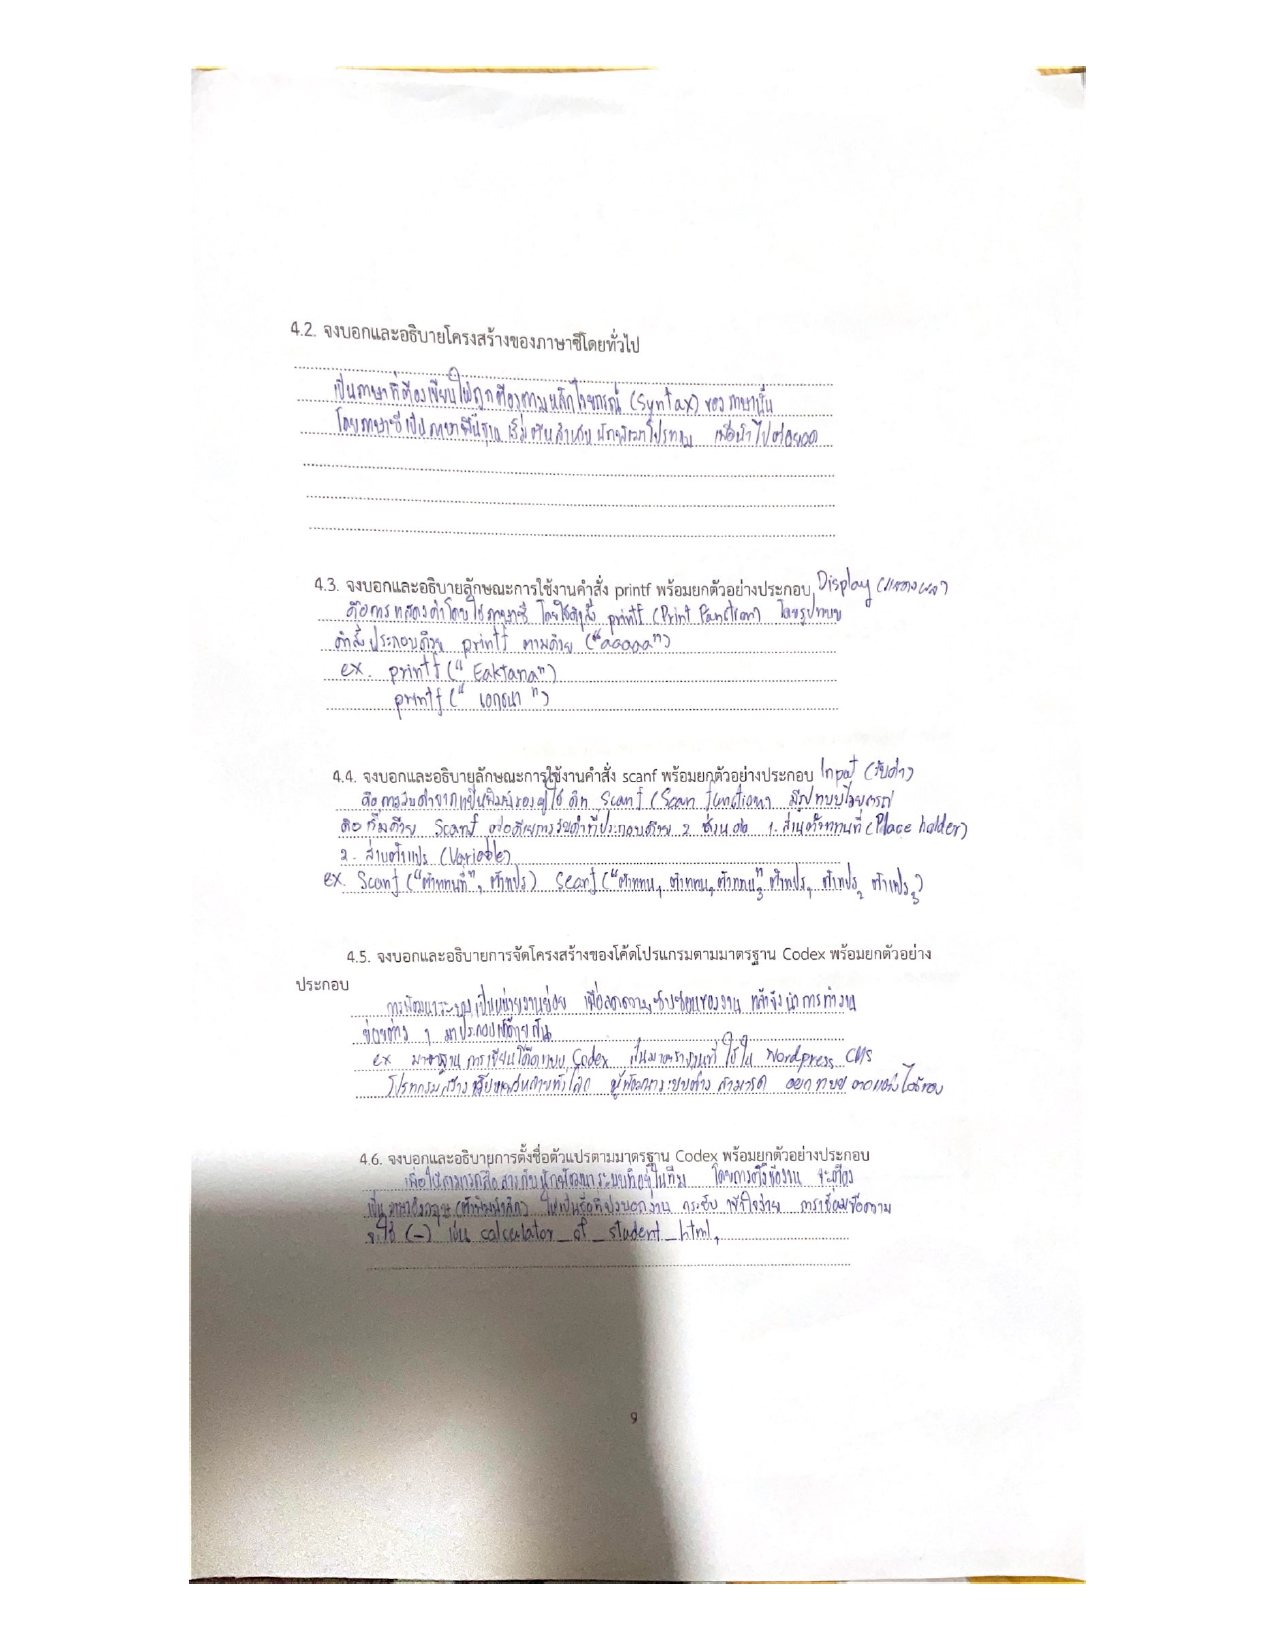 4.2. จงบอกและอธิบายโครงสร้างของภาษาซีโดยทั่วไป
เป็นภาษาที่ต้องเขียนให้ถูกต้องตามหลักไวยกรณ์ (Syntax) ของภาษานั้น
โดยภาษาซีเป็นภาษาพื้นฐาน เริ่มต้นสำหรับนักพัฒนาโปรแกรม เพื่อนำไปต่อยอด
4.3. จงบอกและอธิบายลักษณะการใช้งานคำสั่ง printf พร้อมยกตัวอย่างประกอบ Display (แสดงผล)
คือการแสดงค่าโดยใช้ภาษาซี โดยใช้คำสั่ง printf (Print Function) โดยรูปแบบ
คำสั่งประกอบด้วย printf ตามด้วย ("aaaaa")
ex. printf (" Eaktana")
printf (" เอกธนา ")
4.4. จงบอกและอธิบายลักษณะการใช้งานคำสั่ง scanf พร้อมยกตัวอย่างประกอบ Input (รับค่า)
คือ การรับค่าจากแป้นพิมพ์ของผู้ใช้ คือ Scanf (Scan function) มีรูปแบบไวยกรณ์
คือ ขึ้นด้วย Scanf ต่อด้วยการรับค่าที่ประกอบด้วย 2 ส่วน คือ 1. ส่วนตัวแทนที่ (Place holder)
2. ส่วนตัวแปร (Variable)
ex. Scanf ("ตัวแทนที่", ตัวแปร) Scanf ("ตัวแทน1 ตัวแทน2 ตัวแทน3" ตัวแปร1 ตัวแปร2 ตัวแปร3)
4.5. จงบอกและอธิบายการจัดโครงสร้างของโค้ดโปรแกรมตามมาตรฐาน Codex พร้อมยกตัวอย่าง
ประกอบ
การพัฒนาระบบเป็นหน่วยงานย่อย เพื่อลดความซับซ้อนของงาน แล้วจึงนำการทำงาน
ย่อยต่าง ๆ มาประกอบเข้าด้วยกัน
ex มาตรฐานการเขียนโค้ดแบบ Codex เป็นมาตรฐานที่ใช้ใน Wordpress CMS
โปรแกรมสร้าง ผู้พัฒนาระบบต่าง สามารถ
4.6. จงบอกและอธิบายการตั้งชื่อตัวแปรตามมาตรฐาน Codex พร้อมยกตัวอย่างประกอบ
เพื่อให้สามารถสื่อสารกับนักพัฒนาระบบที่อยู่ในทีม โดยการตั้งชื่องาน จะต้อง
เป็นภาษาอังกฤษ (ตัวพิมพ์เล็ก) ให้เป็นชื่อที่บ่งบอกงาน กระชับ เข้าใจง่าย การเชื่อมข้อความ
จะใช้ (_) เช่น calculator_of_student_html,
9